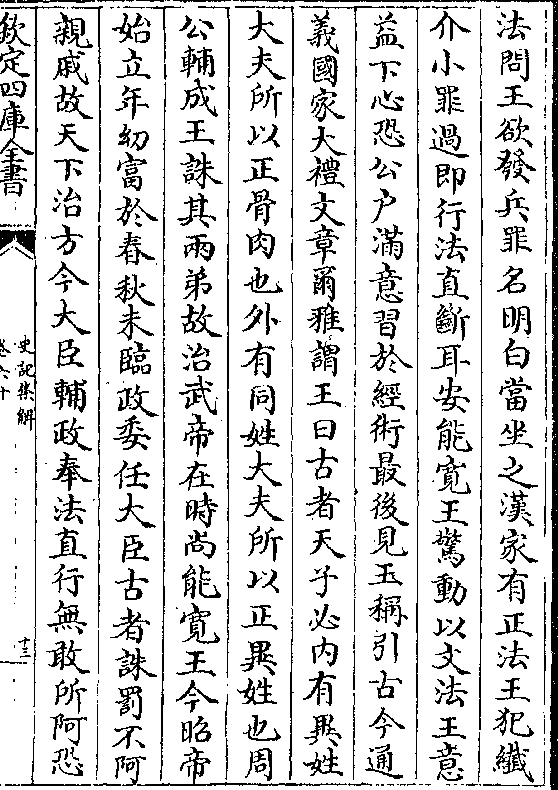 法問王欲發兵罪名明白當坐之漢家有正法王犯纎
介小罪過即行法直斷耳安能寛王驚動以文法王意
益下心恐公户滿意習於經術最後見王稱引古今通
義國家大禮文章爾雅謂王曰古者天子必内有異姓
大夫所以正骨肉也外有同姓大夫所以正異姓也周
公輔成王誅其兩弟故治武帝在時尚能寛王今昭帝
始立年幼富於春秋未臨政委任大臣古者誅罰不阿
親戚故天下治方今大臣輔政奉法直行無敢所阿恐
欽定四庫全書
史記集解
卷六十
十三